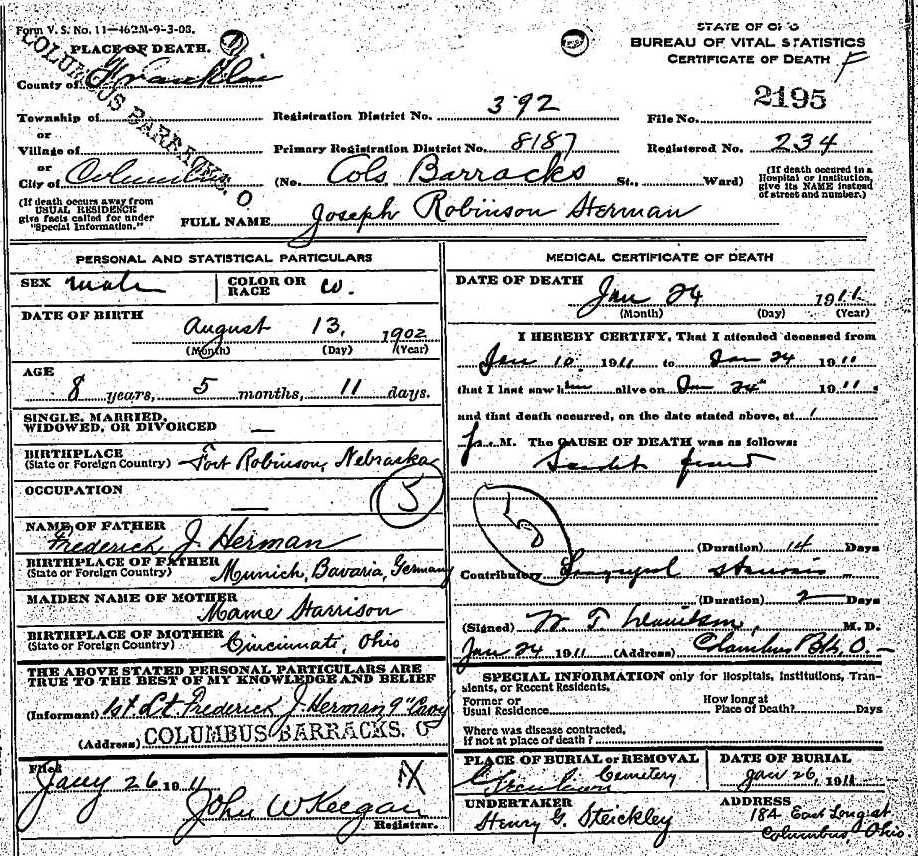 Form V. S. No. 11—462M-9-3-08.
COLUMBUS BARRACKS, O
PLACE OF DEATH.
County of Franklin
Township of
or
Village of
or
City of Columbus
(If death occurs away from
USUAL RESIDENCE
give facts called for under
"Special Information.")
STATE OF OHIO
BUREAU OF VITAL STATISTICS
CERTIFICATE OF DEATH F
Registration District No. 392
File No. 2195
Primary Registration District No. 8187
Registered No. 234
(No. Cols Barracks St., Ward)
(If death occured in a
Hospital or Institution,
give its NAME instead
of street and number.)
FULL NAME Joseph Robinson Herman
PERSONAL AND STATISTICAL PARTICULARS
SEX male COLOR OR RACE w.
DATE OF BIRTH
August 13, 1902
(Month) (Day) (Year)
AGE
8 years, 5 months, 11 days.
SINGLE, MARRIED,
WIDOWED, OR DIVORCED —
BIRTHPLACE
(State or Foreign Country) Fort Robinson, Nebraska
OCCUPATION —
5
NAME OF FATHER
Frederick J. Herman
BIRTHPLACE OF FATHER
(State or Foreign Country) Munich, Bavaria, Germany
MAIDEN NAME OF MOTHER
Mame Harrison
BIRTHPLACE OF MOTHER
(State or Foreign Country) Cincinnati, Ohio
THE ABOVE STATED PERSONAL PARTICULARS ARE
TRUE TO THE BEST OF MY KNOWLEDGE AND BELIEF
(Informant) 1st Lt. Frederick J. Herman 9" Cavy
(Address) COLUMBUS BARRACKS. O
Filed
Jany 26 1911
John W Keegan
Registrar.
MEDICAL CERTIFICATE OF DEATH
DATE OF DEATH
Jan 24 1911
(Month) (Day) (Year)
I HEREBY CERTIFY, That I attended deceased from
Jan 10 1911 to Jan 24 1911
that I last saw him alive on Jan 24" 1911
and that death occurred, on the date stated above, at 1
M. The CAUSE OF DEATH was as follows:
Scarlet fever
(Duration) 14 Days
Contributory Laryngeal stenosis
(Duration) 2 Days
(Signed) W. T. M.D.
Jan 24 1911 (Address) Columbus Bks, O.
SPECIAL INFORMATION only for Hospitals, Institutions, Tran-
sients, or Recent Residents.
Former or
Usual Residence
How long at
Place of Death? Days
Where was disease contracted,
if not at place of death?
PLACE OF BURIAL or REMOVAL
Cemetery
DATE OF BURIAL
Jan 26, 1911
UNDERTAKER
Henry G. Steickley
ADDRESS
184 East Long st
Columbus, Ohio